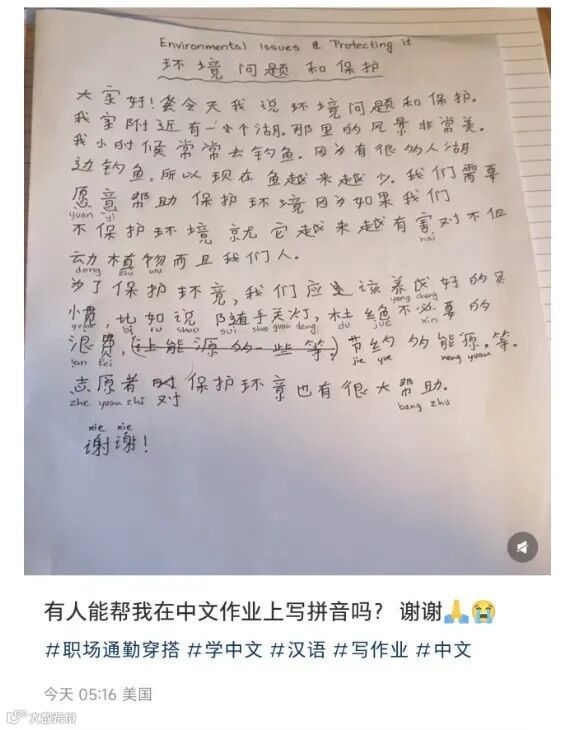 Environmental Issues & Protecting it
环境问题和保护
大家好!今天我说环境问题和保护.
我家附近有一个湖.那里的风景非常美.
我小时候常常去钓鱼.因为有很多人湖
边钓鱼,所以现在鱼越来越少.我们需要
愿意帮助保护环境因为如果我们
yuan yi
不保护环境就它越来越有害对不但
hai
动植物而且我们人.
dong zhi wu
为了保护环境,我们应该养成好的习
yang cheng
惯,比如说随手关灯,杜绝不必要的
guan bi ru shuo sui shou guan deng du jue xin
浪费,(让能源的一些等.)节约的能源,等.
lan fei jie yue neng yuan
志愿者对保护环境也有很大帮助.
zhe yuan zhi bang zhu
xie xie
谢谢!
有人能帮我在中文作业上写拼音吗? 谢谢🙏😭
#职场通勤穿搭 #学中文 #汉语 #写作业 #中文
今天 05:16 美国
大数跨境